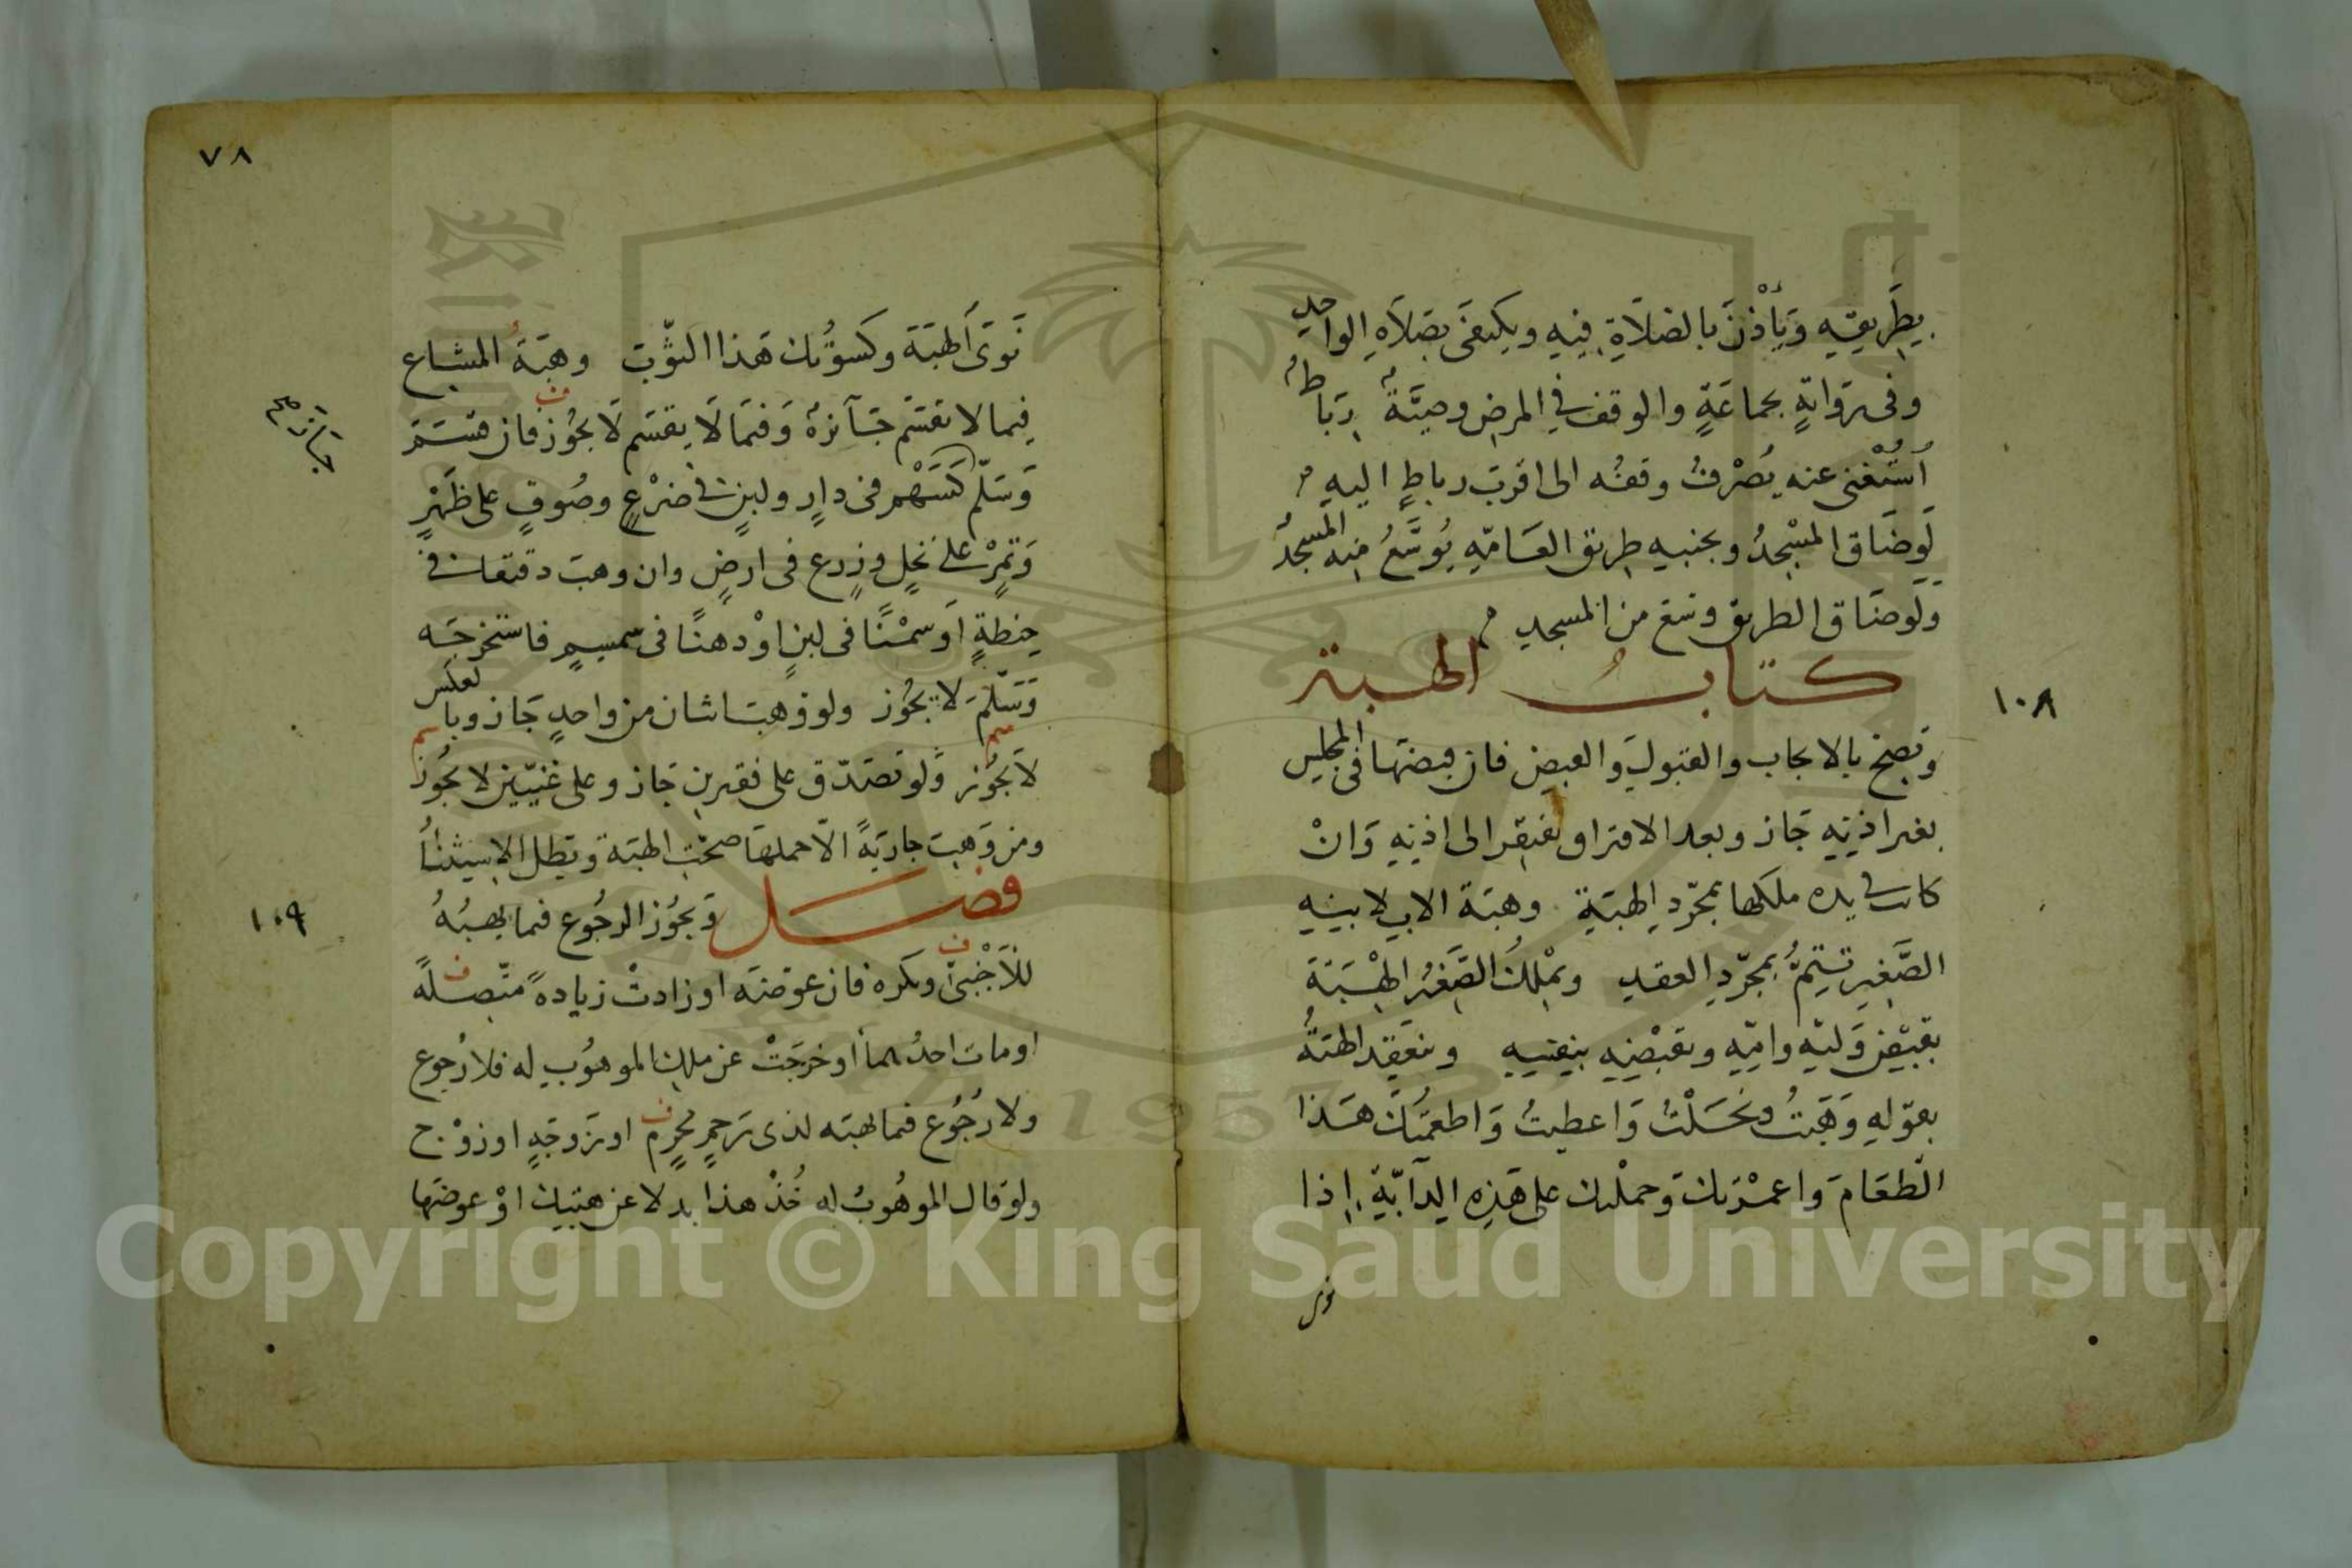 بِطَرِيقِهِ وَيَأْذَنَ بالصلاةِ فِيهِ ويكتفى بصَلاَةِ الواحِدِ
وفى رِوَايةٍ بجماعَةٍ والوقف في المرض وصيَّةٌ رِبَاطٌ
اُسْتُغْنى عنه يُصْرفُ وقفُه الى اقربِ رباطٍ اليهِ
لَوضَاقَ المسْجِدُ وبجنبِه طريق العَامّه يُوَسَّعُ منه المسجدُ
وَلَوضَاق الطريق وسّع من المسجدِ
كتابُ الهبة
وَتصِحّ بالايجاب والقبولِ والقبض فان قبضَهَا فى المجلِسِ
بغير اذنِهِ جَاز وبعد الافتراق يفتقر الى اذنِهِ وَانْ
كانت في يده ملكها بمجرّدِ الهبَةِ وهبَة الابِ لابنِهِ
الصَّغِيرِ تَتِمُّ بمجرّدِ العقدِ ويمْلِكُ الصَّغيرُ الهِبَةَ
بقَبْضِ وَليّهِ وامّهِ وبقَبْضِهِ بنفسِهِ وينعَقِد الهبَةُ
بقوْلهِ وَهَبتُ ونَحَلْتُ وَاعطيتُ وَاطعَمْتُكَ هَذا
الطّعَامَ واعمَرْتك وَحملتك على هَذِهِ الدابّةِ اِذا
نوى
١٠٨
٧٨
نَوَى الهبَةَ وكسَوْتُك هَذا الثّوبَ وهبَةُ المشاع
فِيما لا يقسَم جَآئزةٌ وَفيمَا يقسَم لَا يجُوز فان قسَمَ
وَسَلّم كَسَهْم فى دارٍ ولبنٍ فى ضَرْعٍ وصُوفٍ على ظَهْرٍ
وَتَمْرٍ على نخلٍ وزرع فى ارضٍ وان وهبَ دقيقا فى
حِنطةٍ اَوسَمْنًا فى لبنٍ اوْ دهنًا فى سمسمٍ فاستخرجَه
وَسَلّمَ لا يجُوز ولو وَهبَ اثنان من واحدٍ جَاز وبالعكس
لَا يجُوز وَلو تصَدّق على فقيرين جَاز وعلى غنيّين لا يجُوز
ومن وَهبَ جاريَةً الّا حملهَا صحّتِ الهبَة وبَطل الاِستِثنَاُ
فصل وَيجُوز الرجُوع فيما يهبُهُ
١٠٩
للاَجْنبىّ ويكره فان عوّضَه او زادتْ زيادةً متّصلةً
او مات احدُهما أو خرجَتْ عن ملك الموهُوبِ له فلا رُجوع
ولا رُجُوع فيما يهبَه لذى رَحِمٍ مَحْرَمٍ او زَوجَةٍ او زوْج
ولو قال الموهُوبُ له خُذْ هذا بدلا عن هبَتِك اوْ عوضَهَا